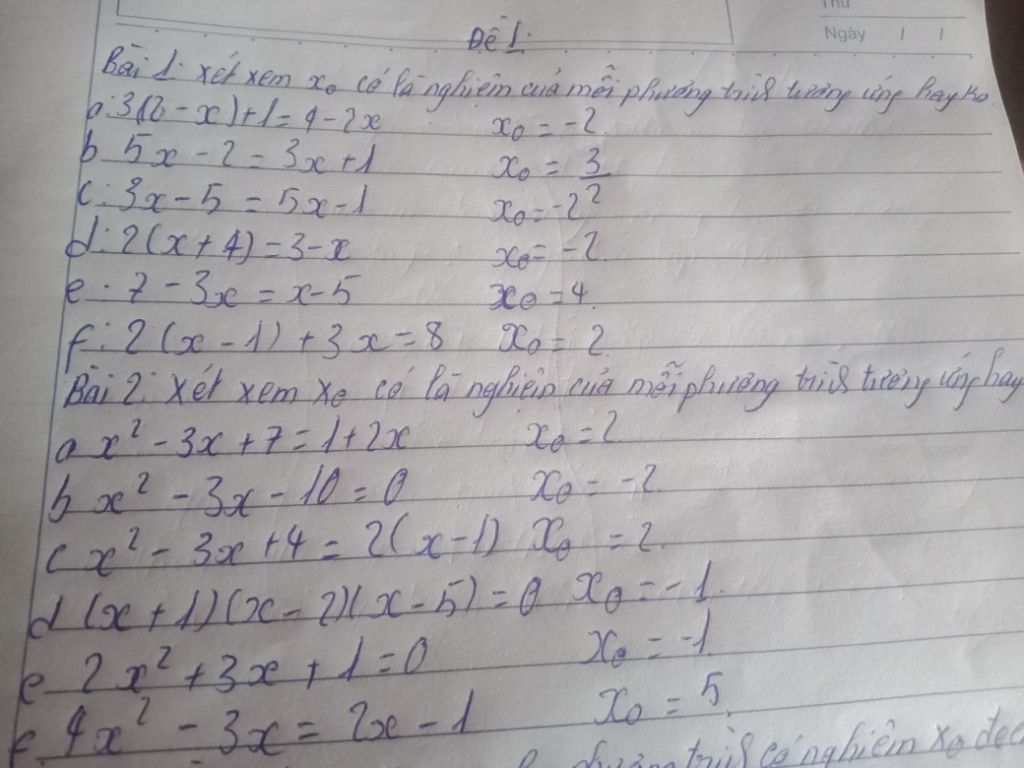 Thứ
Ngày
Đề 1.
Bài 1: Xét xem x₀ có là nghiệm của mỗi phương trình tương ứng hay ko.
a: 3(2 - x) + 1 = 4 - 2x x₀ = -2
b 5x - 2 = 3x + 1 x₀ = 3/2
c: 3x - 5 = 5x - 1 x₀ = -2
d: 2(x + 4) = 3 - x x₀ = -2
e. 7 - 3x = x - 5 x₀ = 4.
f: 2(x - 1) + 3x = 8 x₀ = 2
Bài 2: Xét xem x₀ có là nghiệm của mỗi phương trình tương ứng hay
a x² - 3x + 7 = 1 + 2x x₀ = 2
b x² - 3x - 10 = 0 x₀ = -2
c x² - 3x + 4 = 2(x - 1) x₀ = 2.
d (x + 1)(x - 2)(x - 5) = 0 x₀ = -1.
e 2x² + 3x + 1 = 0 x₀ = -1
f. 4x² - 3x = 2x - 1 x₀ = 5.
phương trình có nghiệm x₀